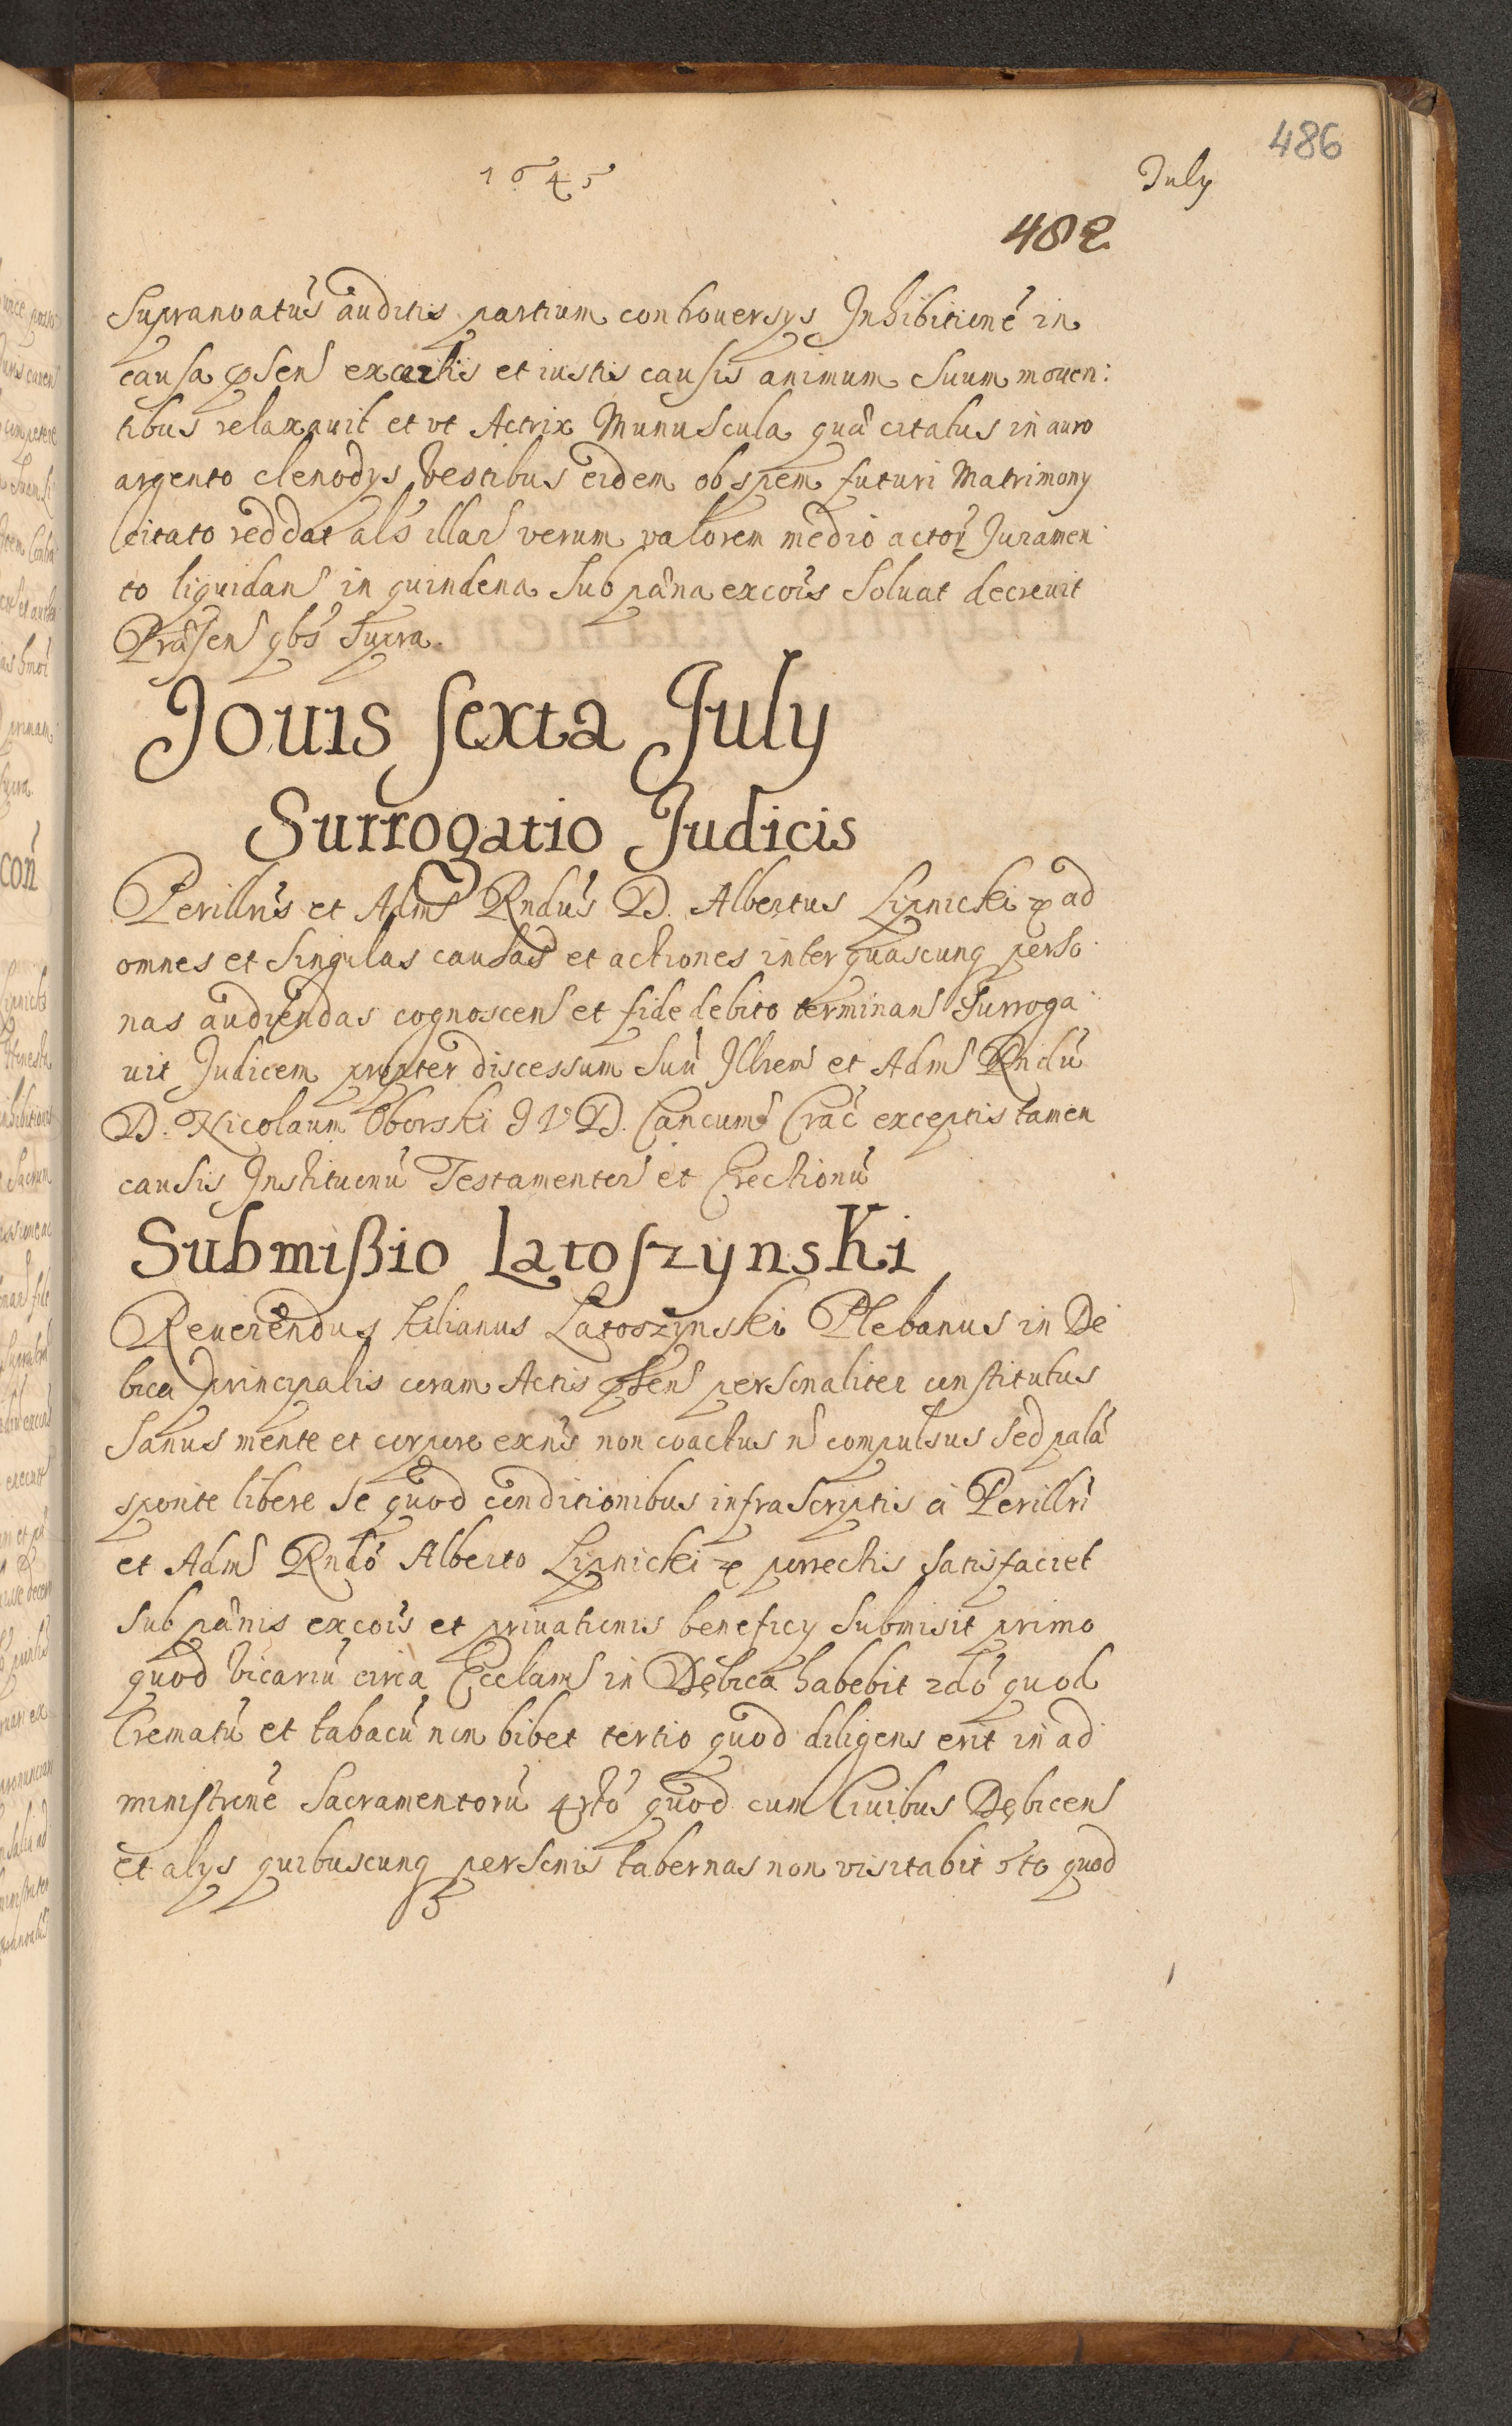 486
1645 July
482
Supranoatus auditis partium controuersys Inhibitione in
causa psen ex certis et iustis causis animum suum mouen:
tibus relaxauit et vt Actrix Munuscula qua citatus in auro
argento clenodys vestibus eidem ob spem futuri Matrimony
citato reddat als illar verum valorem medio actor Juramen
to liquidan in quindena sub pana excois soluat decreuit
Prasen qbs supra.
Jouis sexta July
Surrogatio Judicis
Perillris et Adm Rndus D. Albertus Lipnicki ad
omnes et singulas causas et actiones inter quascunq perso
nas audiendas cognoscen et fide debito terminan surroga
uit Judicem propter discessum suu Illrem et Adm Rndu
D. Nicolaum Oborski J V D. Cancum Crac exceptis tamen
causis Instituonu Testamentor et Erectionu
Submißio Latoszynski
Reuerendus Kilianus Latoszynski Plebanus in De
bica principalis coram Actis psen personaliter constitutus
sanus mente et corpore exns non coactus n compulsus sed pala
sponte libere se quod conditionibus infrascriptis a Perillri
et Adm Rndo Alberto Lipnicki porrectis satisfaciet
sub panis excois et priuationis beneficy submisit primo
quod vicariu circa Ecclam in Dębica habebit 2do quod
Crematu et tabacu non bibet tertio quod diligens erit in ad
ministrone Sacramentoru 4rto quod cum Ciuibus Dębicen
et alys quibuscunq personis tabernas non visitabit 5to quod